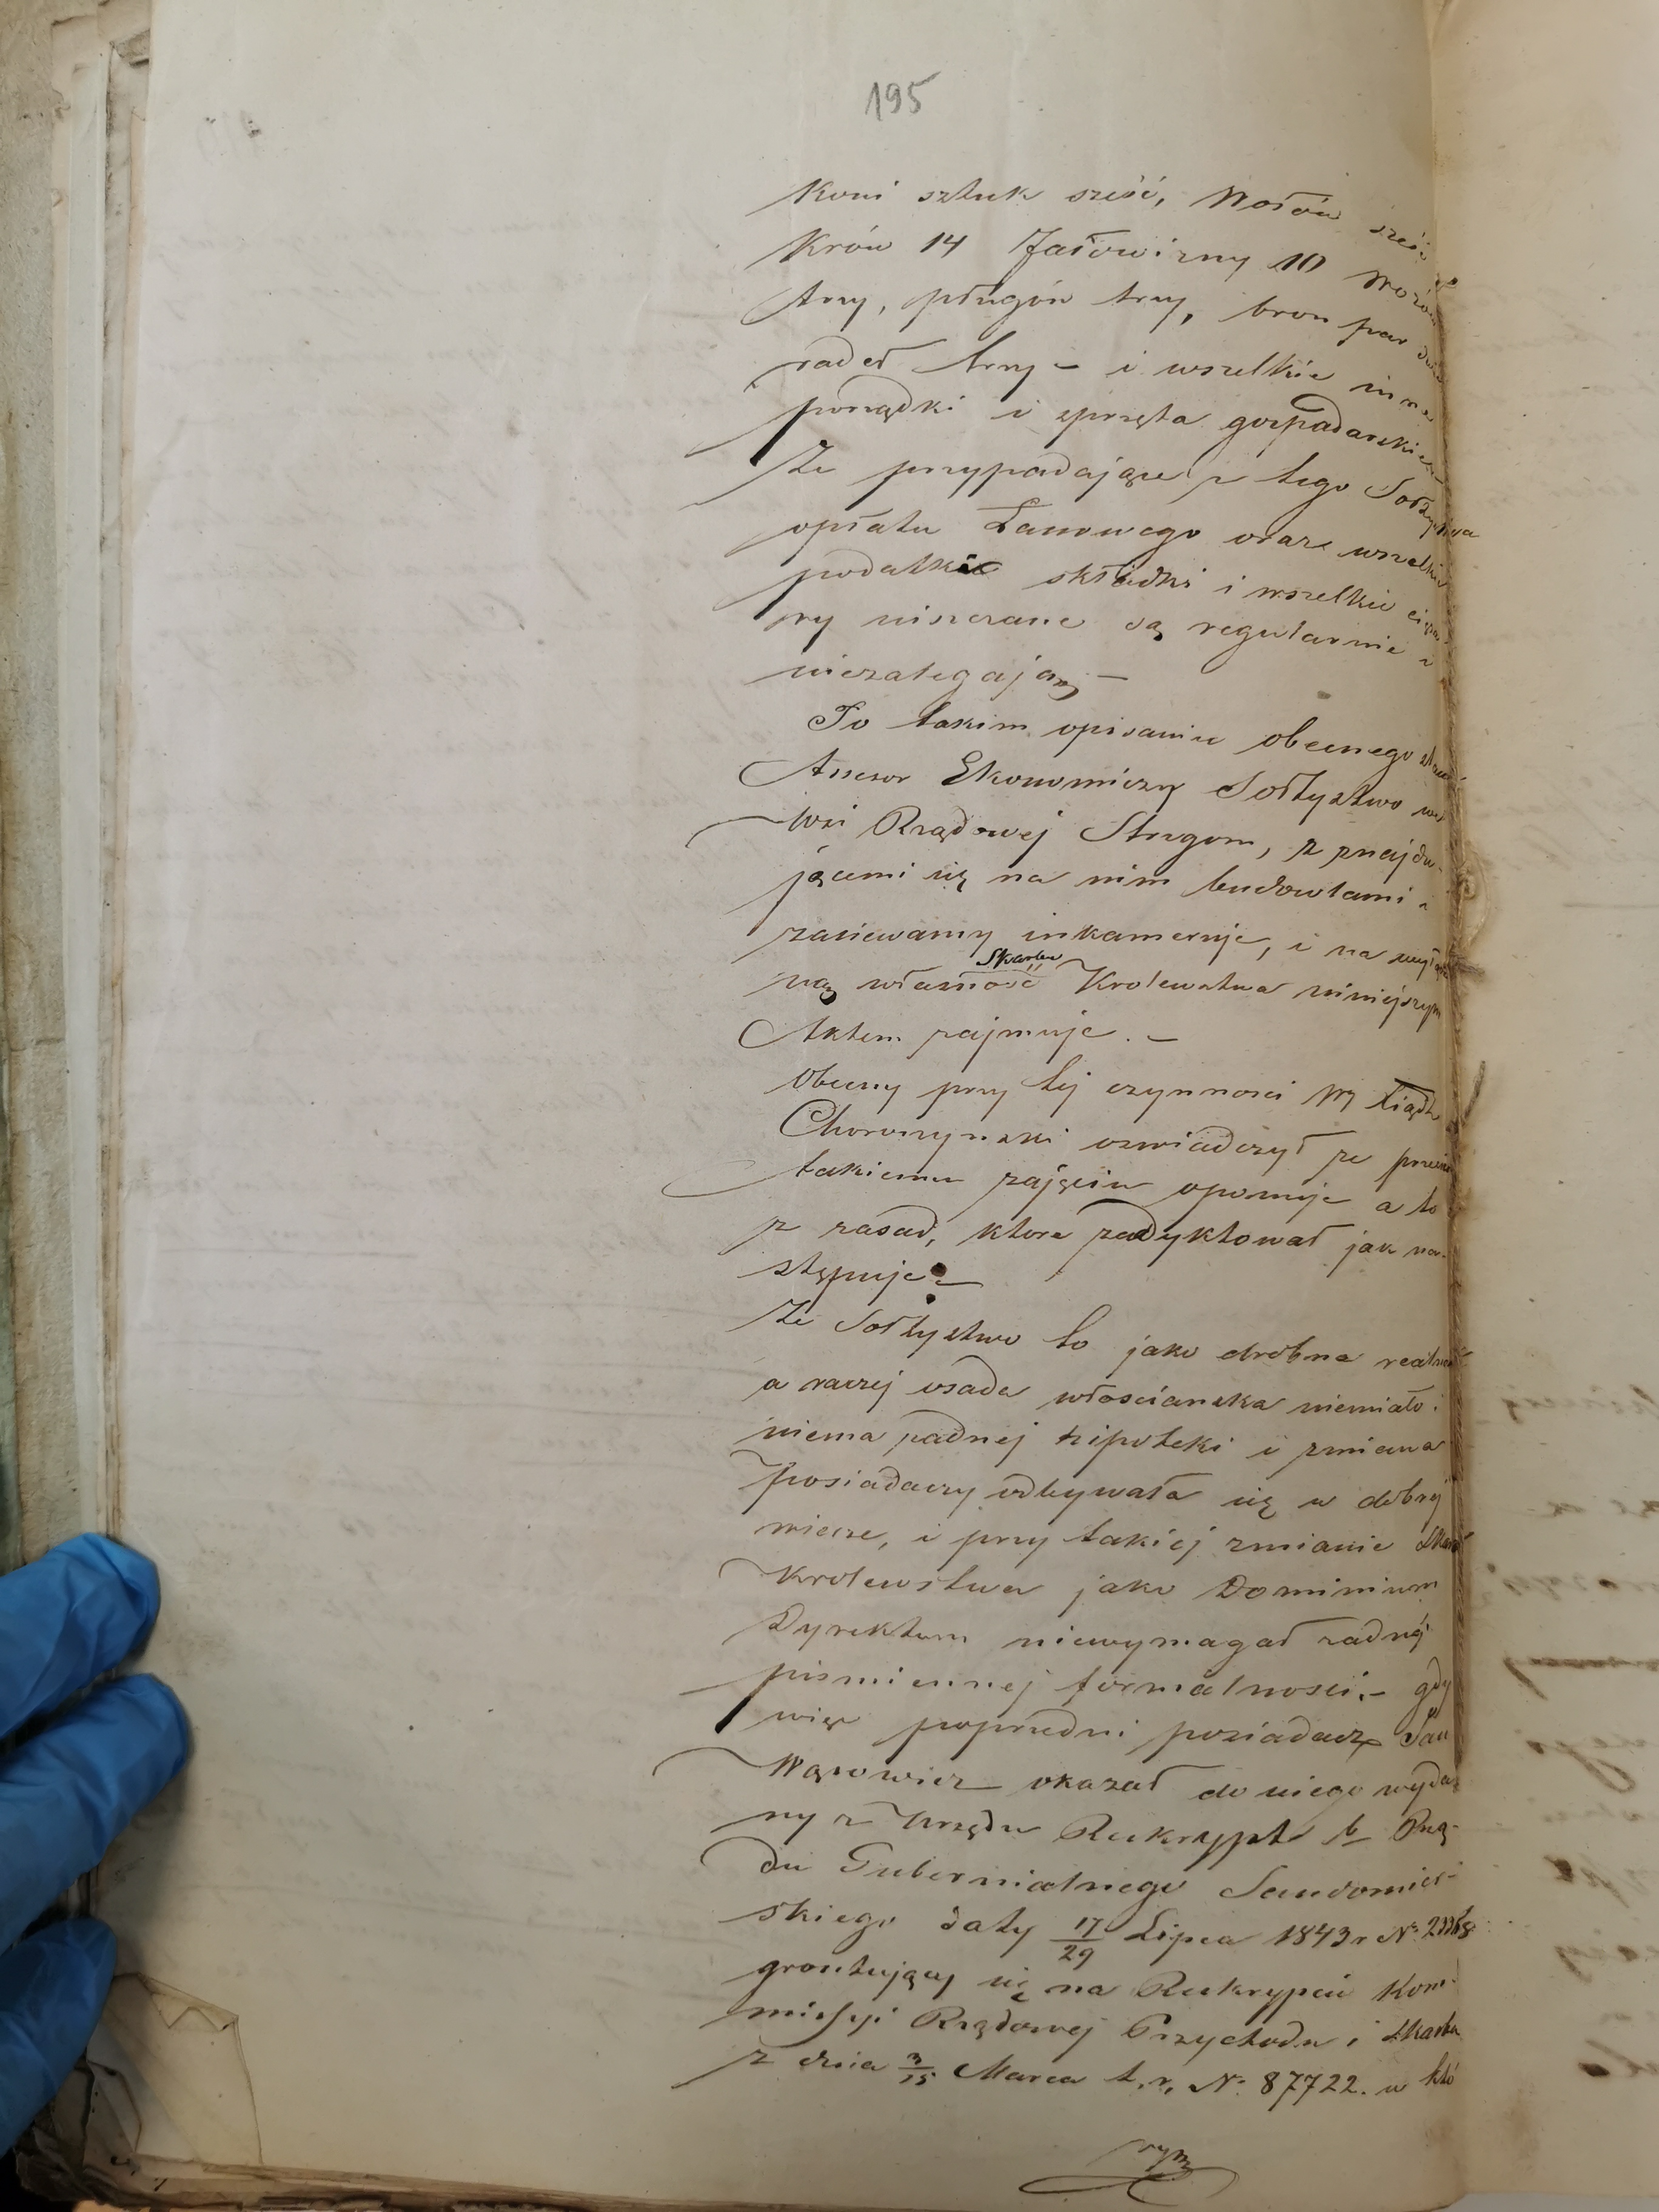 195
Koni sztuk sześć, Wołów sześć
Krów 14 Jałowizny 10 Wozów
trzy, pługów trzy, bron par dwie
radeł trzy – i wszelkie inne
porządki i sprzęta gospodarskie
Że przypadające z tego Sołtystwa
opłata Łanowego oraz wszelkie
podatkie składki i wszelkie cięża
ry uiszczane są regularnie i
niezalegają –
Po takim opisaniu obecnego
Assesor Ekonomiczny Sołtystwo we
Wsi Rządowej Strzygom, z znajdu-
jącemi się na nim budowlami i
zasiewamy inkameruje, i na wyłącz
ną własność Skarbu Krolewstwa niniejszym
Aktem zajmuje. –
Obecny przy tej czynnosci Wy Xiądz
Choroszynski oswiadczył ze przeciw
takiemu zajęciu oponuje a to
z zasad, ktore zadyktował jak na-
stępuje –
Że Sołtystwo to jako drobna realność
a raczej osada włosciańska niemiało i
niema żadnej hipoteki i zmiana
posiadaczy odbywała się w dobrej
wierze, i przy takiej zmianie Skarb
Krolewstwa jako Dominium
Dyrektum niewymagał żadnéj
pismiennej formalnosci. – gdy
więc poprzedni posiadacz Pan
Wąsowicz okazał do niego wyda-
ny z Urzędu Reskrypt b. Rzą-
du Gubernialnego Sandomier-
skiego daty 17/29 Lipca 1843 r No
grontujący się na Reskrypcie Kom-
missyi Rządowej Przychodu i Skarbu
z dnia 3/15 Marca t. r. No 87722. w któ
rym